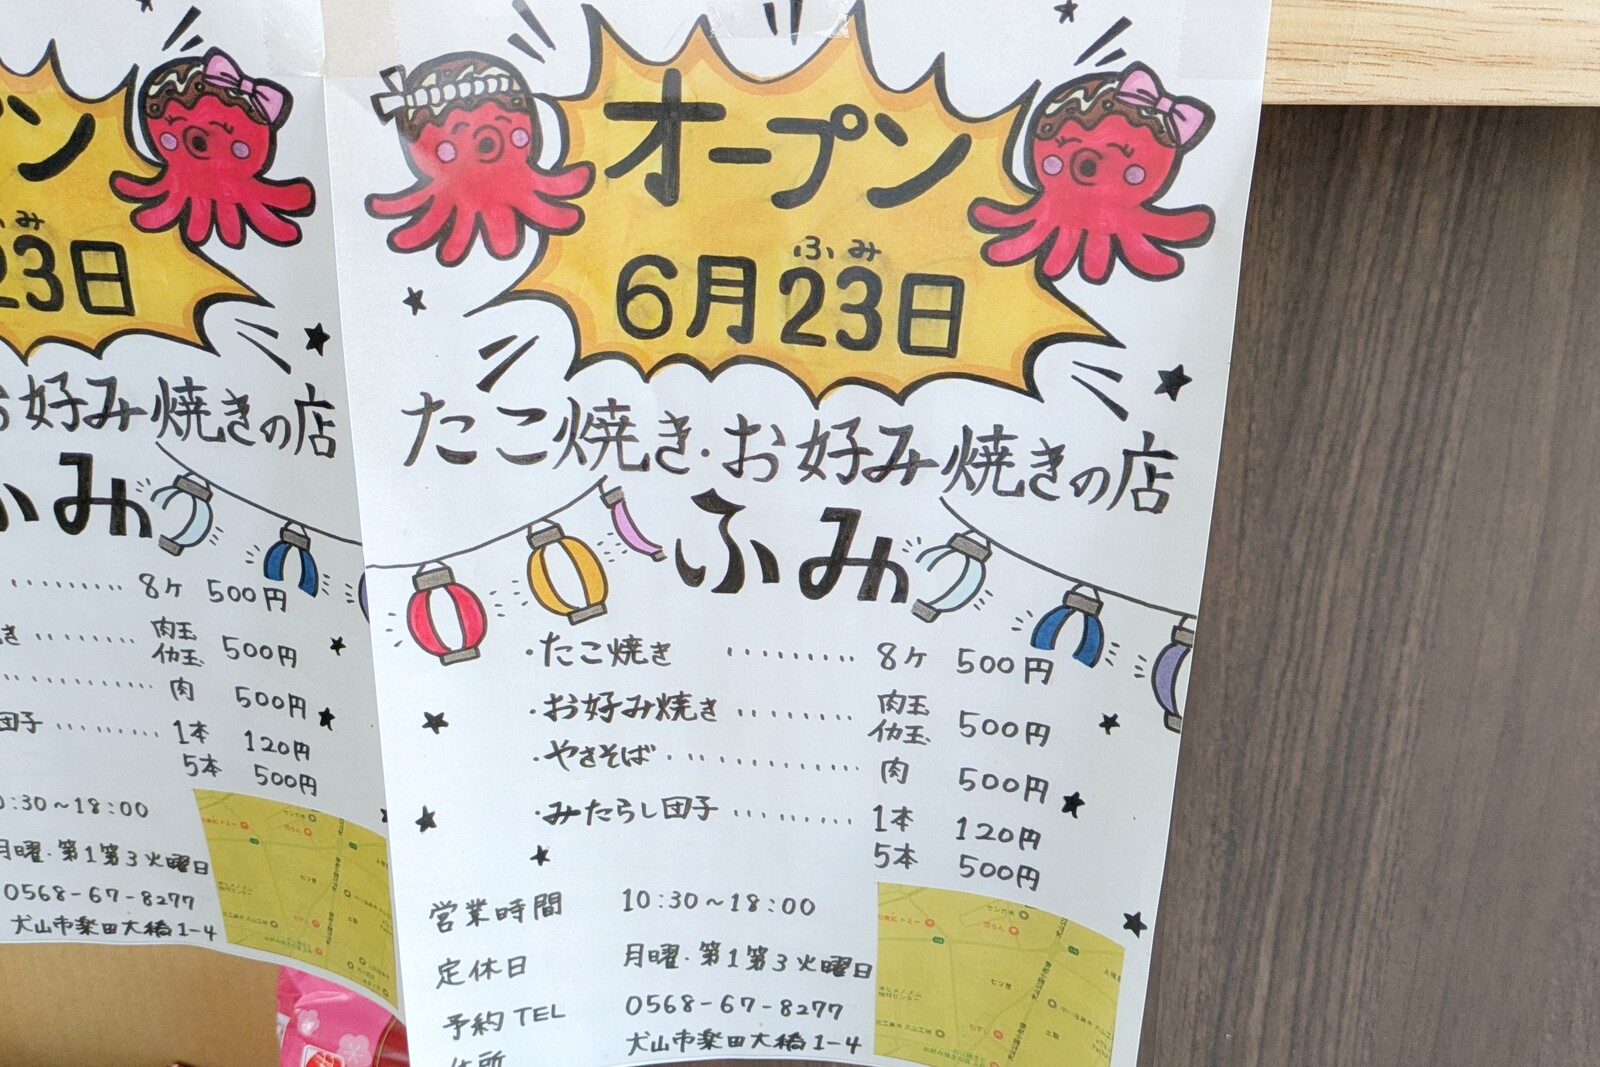 オープン
ふみ
6月23日
たこ焼き・お好み焼きの店
ふみ
・たこ焼き ········· 8ケ 500円
・お好み焼き ········· 肉玉 イカ玉 500円
・やきそば ·············· 肉 500円
・みたらし団子 ·········· 1本 120円
5本 500円
営業時間 10:30~18:00
定休日 月曜・第1第3火曜日
予約TEL 0568-67-8277
住所 犬山市楽田大橋1-4
プン
ふみ
23日
お好み焼きの店
ふみ
········· 8ケ 500円
き ········ 肉玉 イカ玉 500円
·············· 肉 500円
団子 ·········· 1本 120円
5本 500円
0:30~18:00
月曜・第1第3火曜日
0568-67-8277
犬山市楽田大橋1-4